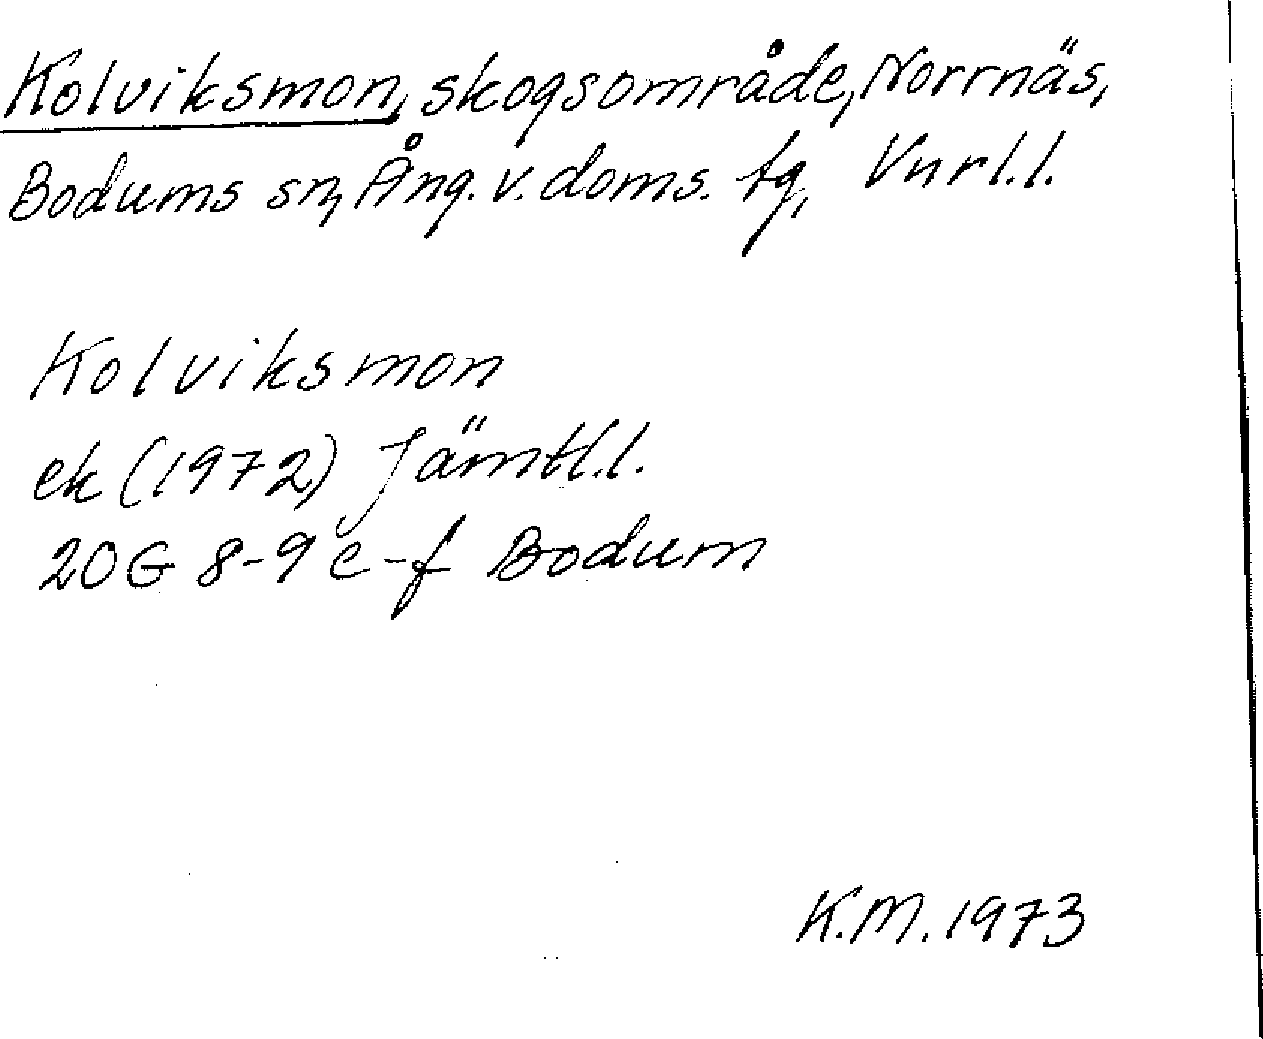 Kolviksmon, skogsområde, Norrnäs,
Bodums sn, Ång. v. doms. tg, Vnrl.l.
Kolviksmon
ek (1972) Jämtl.l.
20G 8-9 e-f Bodum
K.M. 1973